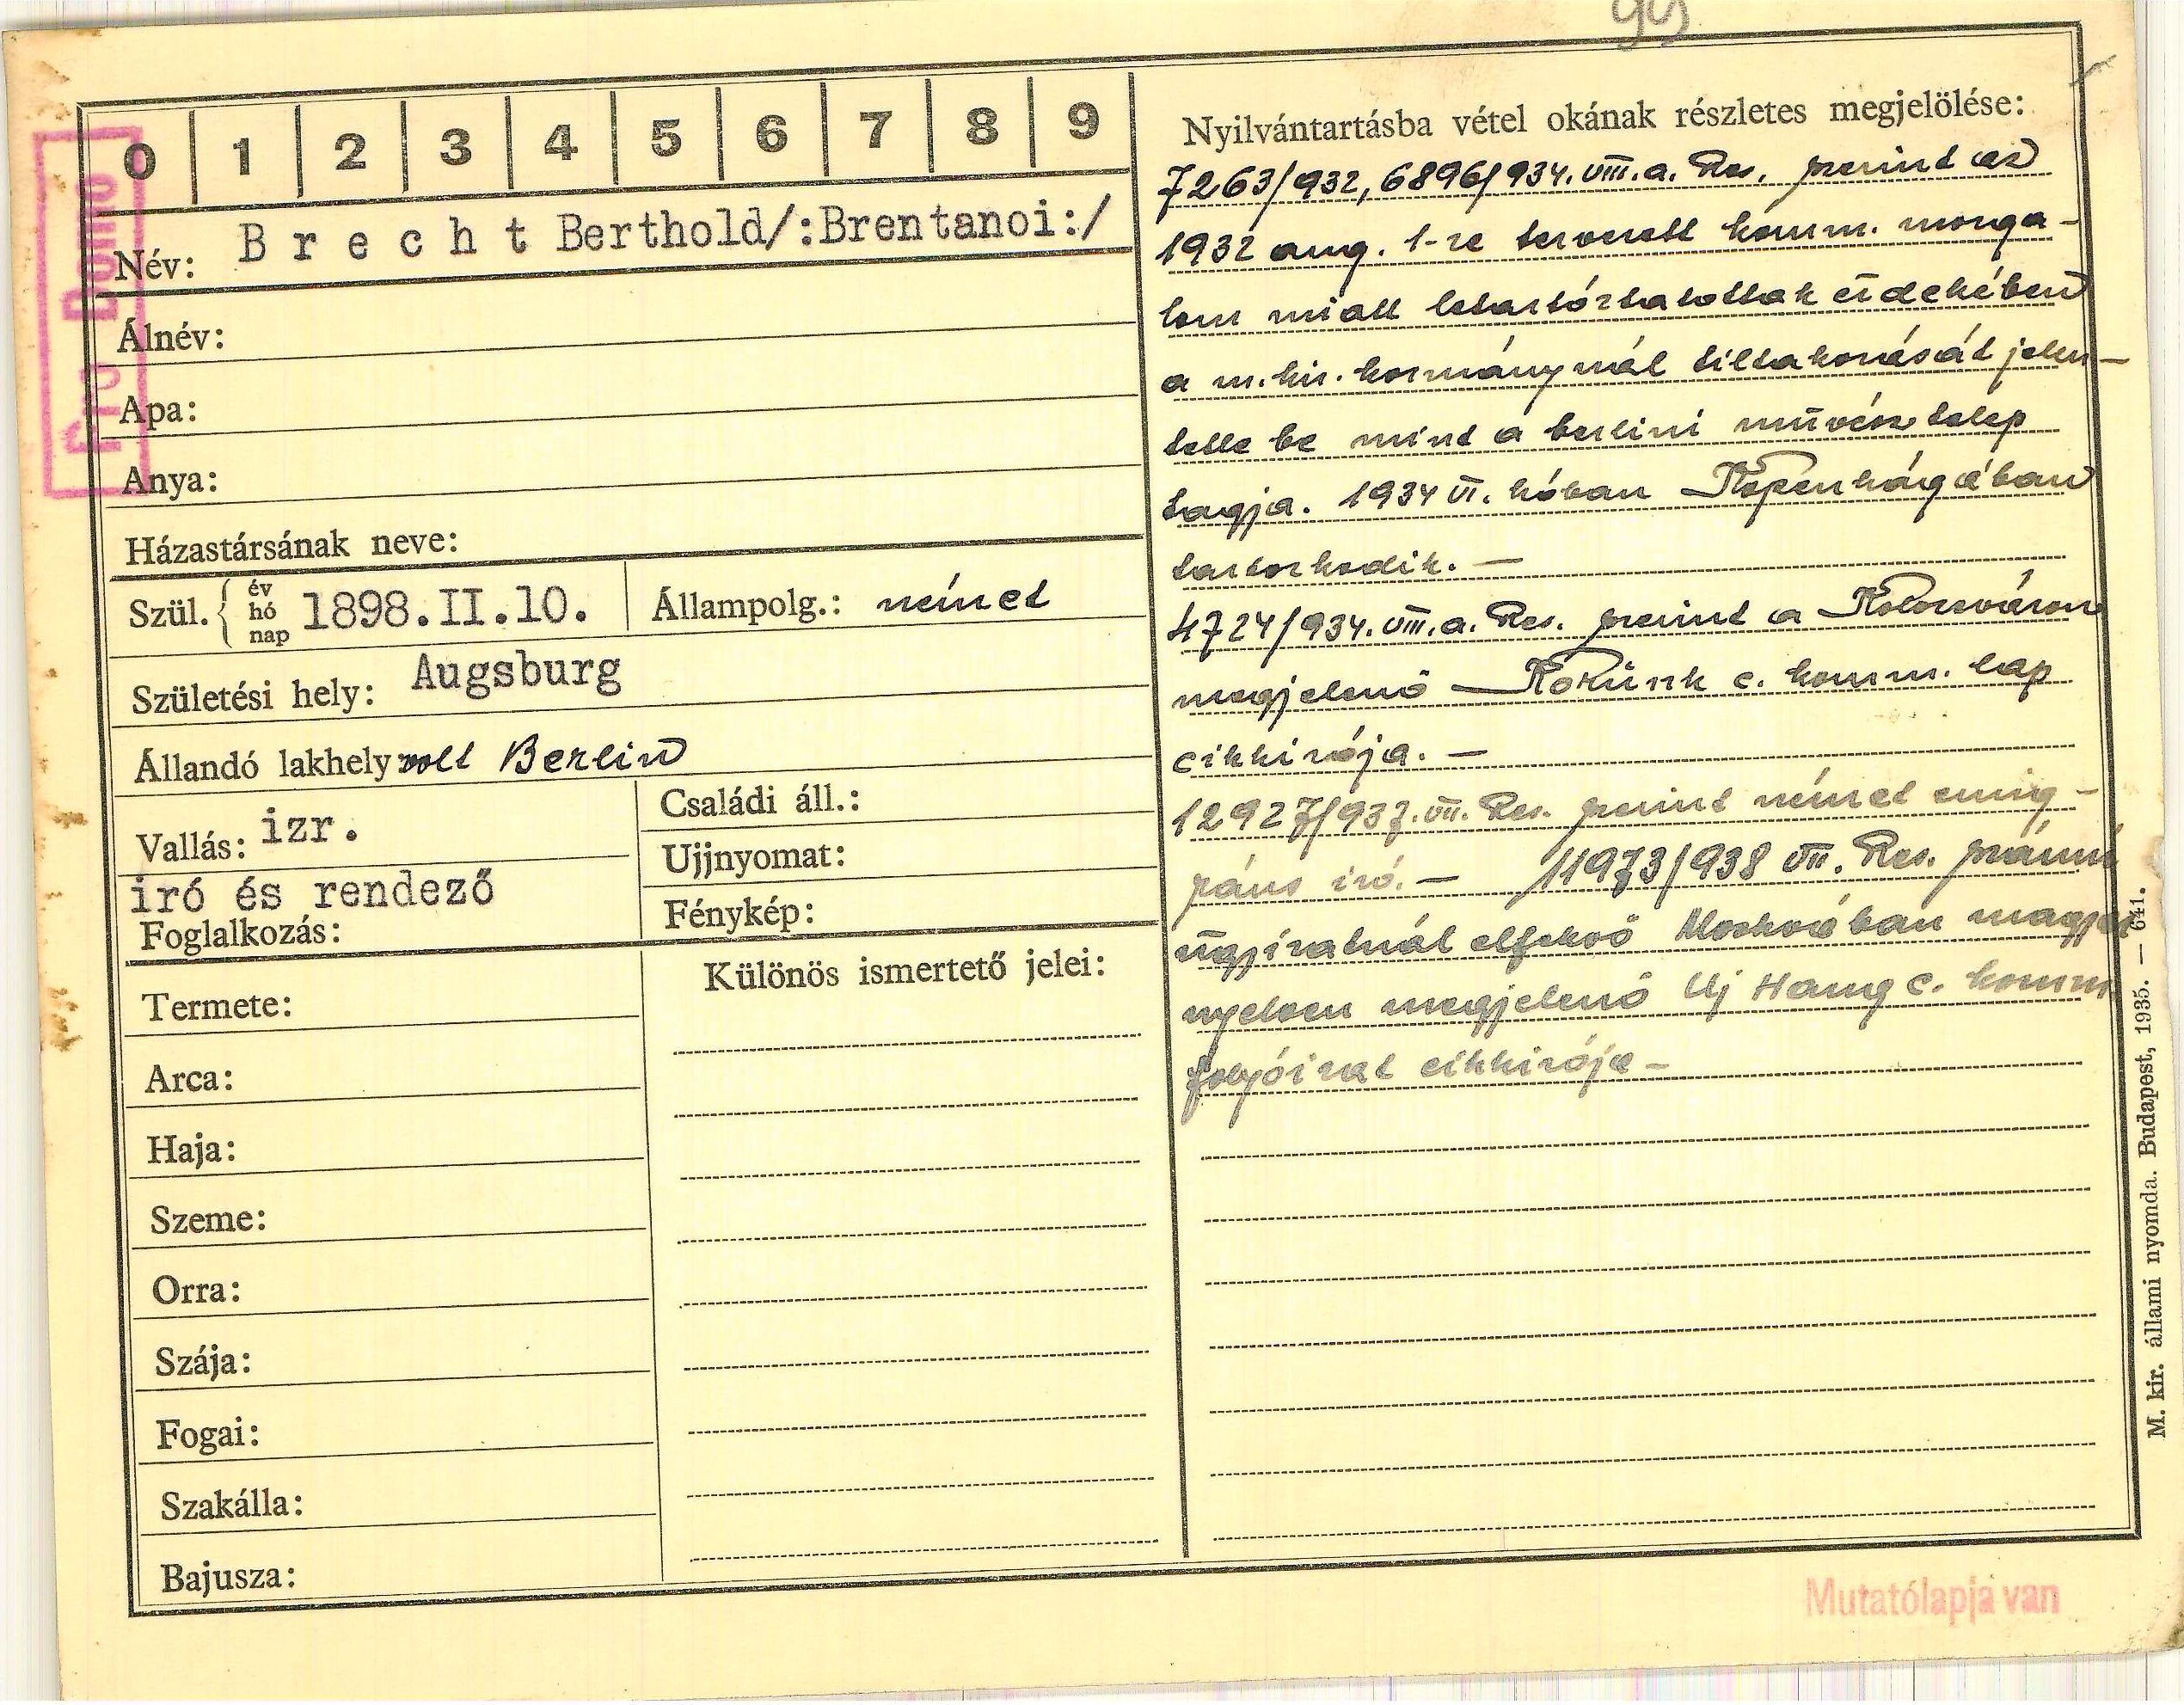 0 1 2 3 4 5 6 7 8 9
Pro Domo
Név: Brecht Berthold/:Brentanoi:/
Álnév:
Apa:
Anya:
Házastársának neve:
Szül. év hó nap 1898.II.10. Állampolg.: német
Születési hely: Augsburg
Állandó lakhely volt Berlin
Vallás: izr.
Családi áll.:
Ujjnyomat:
Fénykép:
iró és rendező
Foglalkozás:
Termete:
Arca:
Haja:
Szeme:
Orra:
Szája:
Fogai:
Szakálla:
Bajusza:
Különös ismertető jelei:
Nyilvántartásba vétel okának részletes megjelölése:
7263/932, 6896/934.VIII.a. Res. szerint az
1932 aug. 1-re tervezett komm. mozga-
lom miatt letartóztatottak érdekében
a m.kir. kormánynál tiltakozását jelen-
tette be mint a berlini művésztelep
tagja. 1934 VI. hóban Kopenhágában
tartózkodik. —
4724/934.VIII.a. Res. szerint a Kolozsváron
megjelenő Korunk c. komm. lap
cikkirója. —
12927/937.VII. Res. szerint német emig-
ráns iró. — 11973/938 VII. Res. számú
ügyiratnál elfekvő Moszkvában magyar
nyelven megjelenő Uj Hang c. komm.
folyóirat cikkirója —
M. kir. állami nyomda. Budapest, 1935. — 641.
Mutatólapja van